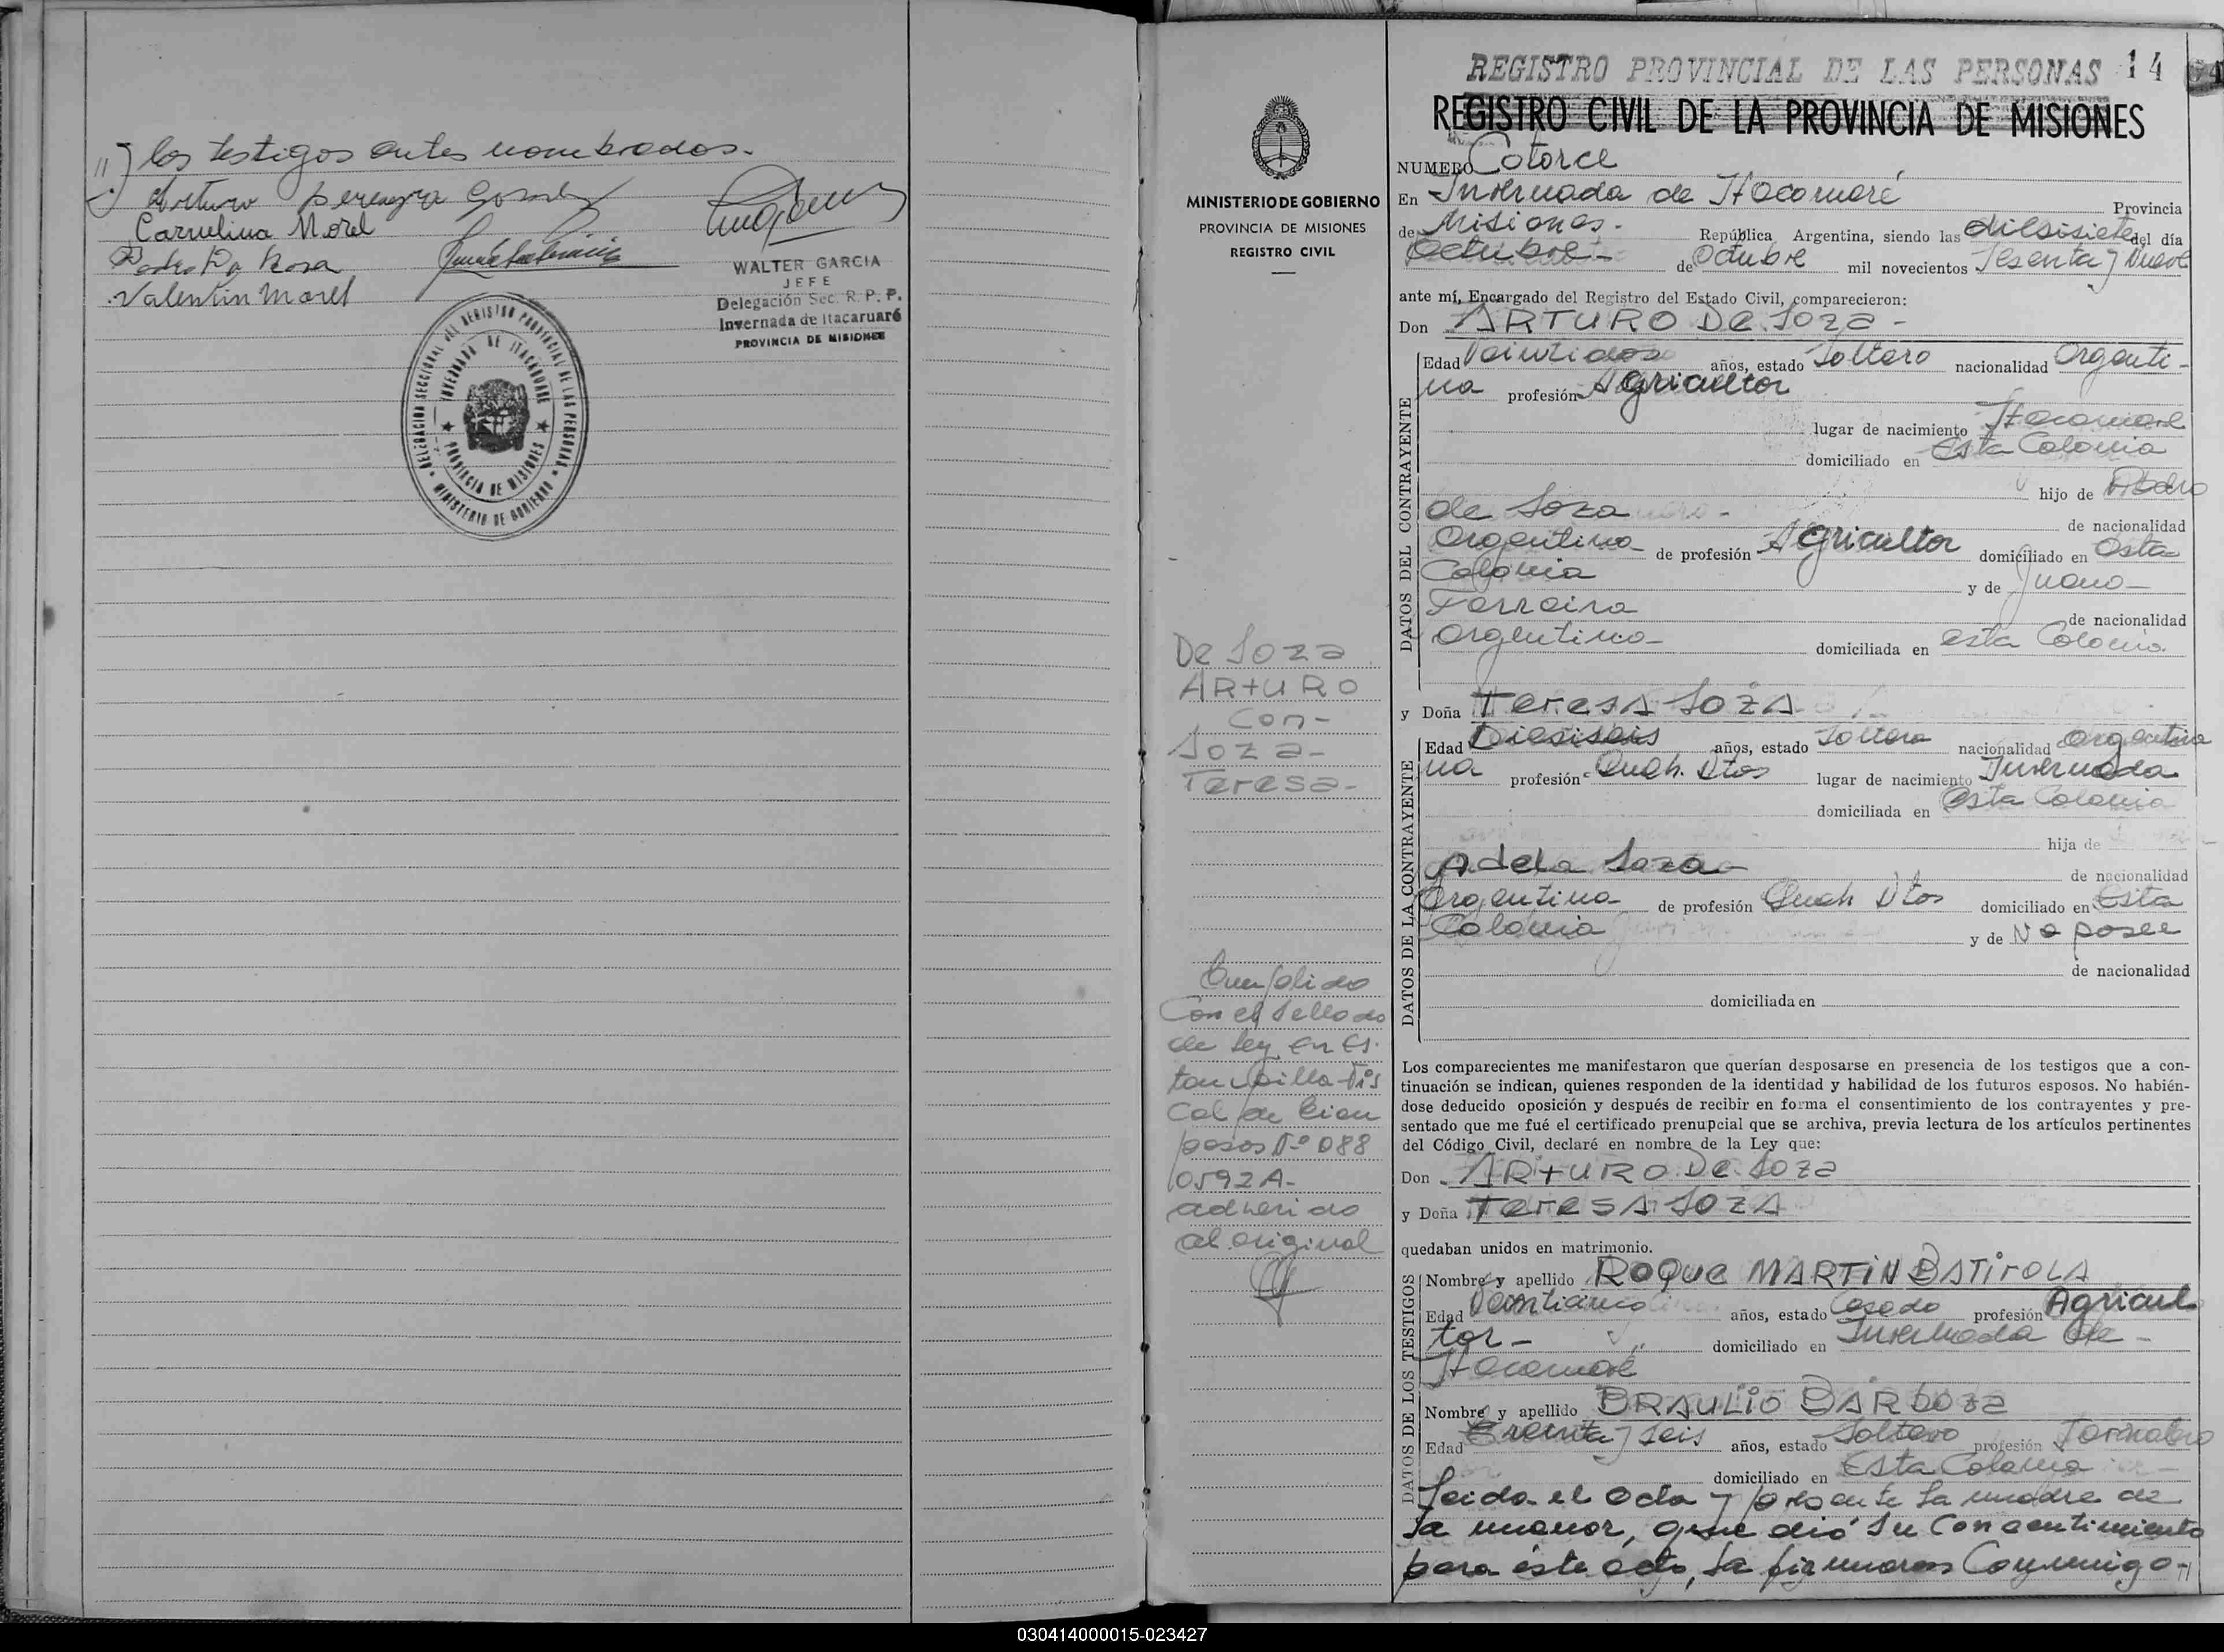 ") los testigos antes nombrados.-
Arturo pereyra
Carmelina Morel
Pedro Da Rosa
Valentin Morel
WALTER GARCIA
JEFE
Delegación Sec. R. P. P.
Invernada de Itacaruaré
PROVINCIA DE MISIONES
DELEGACION SECCIONAL DEL REGISTRO PROVINCIAL DE LAS PERSONAS
INVERNADA DE ITACARUARE
PROVINCIA DE MISIONES
MINISTERIO DE GOBIERNO
MINISTERIO DE GOBIERNO
PROVINCIA DE MISIONES
REGISTRO CIVIL
De Soza
ARTURO
Con-
Soza-
Teresa-
Cumplido
Con el Sellado
de Ley en Es-
tampilla Fis
Cal de Cien
pesos Nº 088
0592A-
adherido
al original
REGISTRO PROVINCIAL DE LAS PERSONAS 14
REGISTRO CIVIL DE LA PROVINCIA DE MISIONES
NUMERO Catorce
En Invernada de Itacaruaré Provincia
de Misiones.- República Argentina, siendo las diesisiete del día
Octubre - de Octubre mil novecientos Sesenta y Nueve
ante mí, Encargado del Registro del Estado Civil, comparecieron:
Don ARTURO De Soza -
DATOS DEL CONTRAYENTE
Edad Veintidos años, estado Soltero nacionalidad Argenti-
na profesión Agricultor
lugar de nacimiento Itacaruaré
domiciliado en Esta Colonia
hijo de Pedro
de Soza - de nacionalidad
Argentina de profesión Agricultor domiciliado en Esta
Colonia y de Juana
Ferreira de nacionalidad
Argentina domiciliada en esta Colonia
y Doña TeresA SozA
DATOS DE LA CONTRAYENTE
Edad Diesiseis años, estado Soltera nacionalidad Argentina
na profesión Queh. Dtos lugar de nacimiento Invernada
domiciliada en Esta Colonia
hija de
Adela Soza- de nacionalidad
Argentina de profesión Queh Dtos domiciliado en Esta
Colonia y de No posee
de nacionalidad
domiciliada en
Los comparecientes me manifestaron que querían desposarse en presencia de los testigos que a con-
tinuación se indican, quienes responden de la identidad y habilidad de los futuros esposos. No habién-
dose deducido oposición y después de recibir en forma el consentimiento de los contrayentes y pre-
sentado que me fué el certificado prenupcial que se archiva, previa lectura de los artículos pertinentes
del Código Civil, declaré en nombre de la Ley que:
Don ARTURO De Soza
y Doña TeresA SozA
quedaban unidos en matrimonio.
DATOS DE LOS TESTIGOS
Nombre y apellido ROQUE MARTIN BATIROLA
Edad Veinticinco años, estado Casado profesión Agricul
tor - domiciliado en Invernada de -
Itacaruaré
Nombre y apellido BRAULIO BARBOZA
Edad Treinta y Seis años, estado Soltero profesión Jornalero
domiciliado en Esta Colonia
Leida el acta y presente la madre de
la menor, que dió su Consentimiento
para éste acto, la firmaron Conmigo-"
030414000015-023427